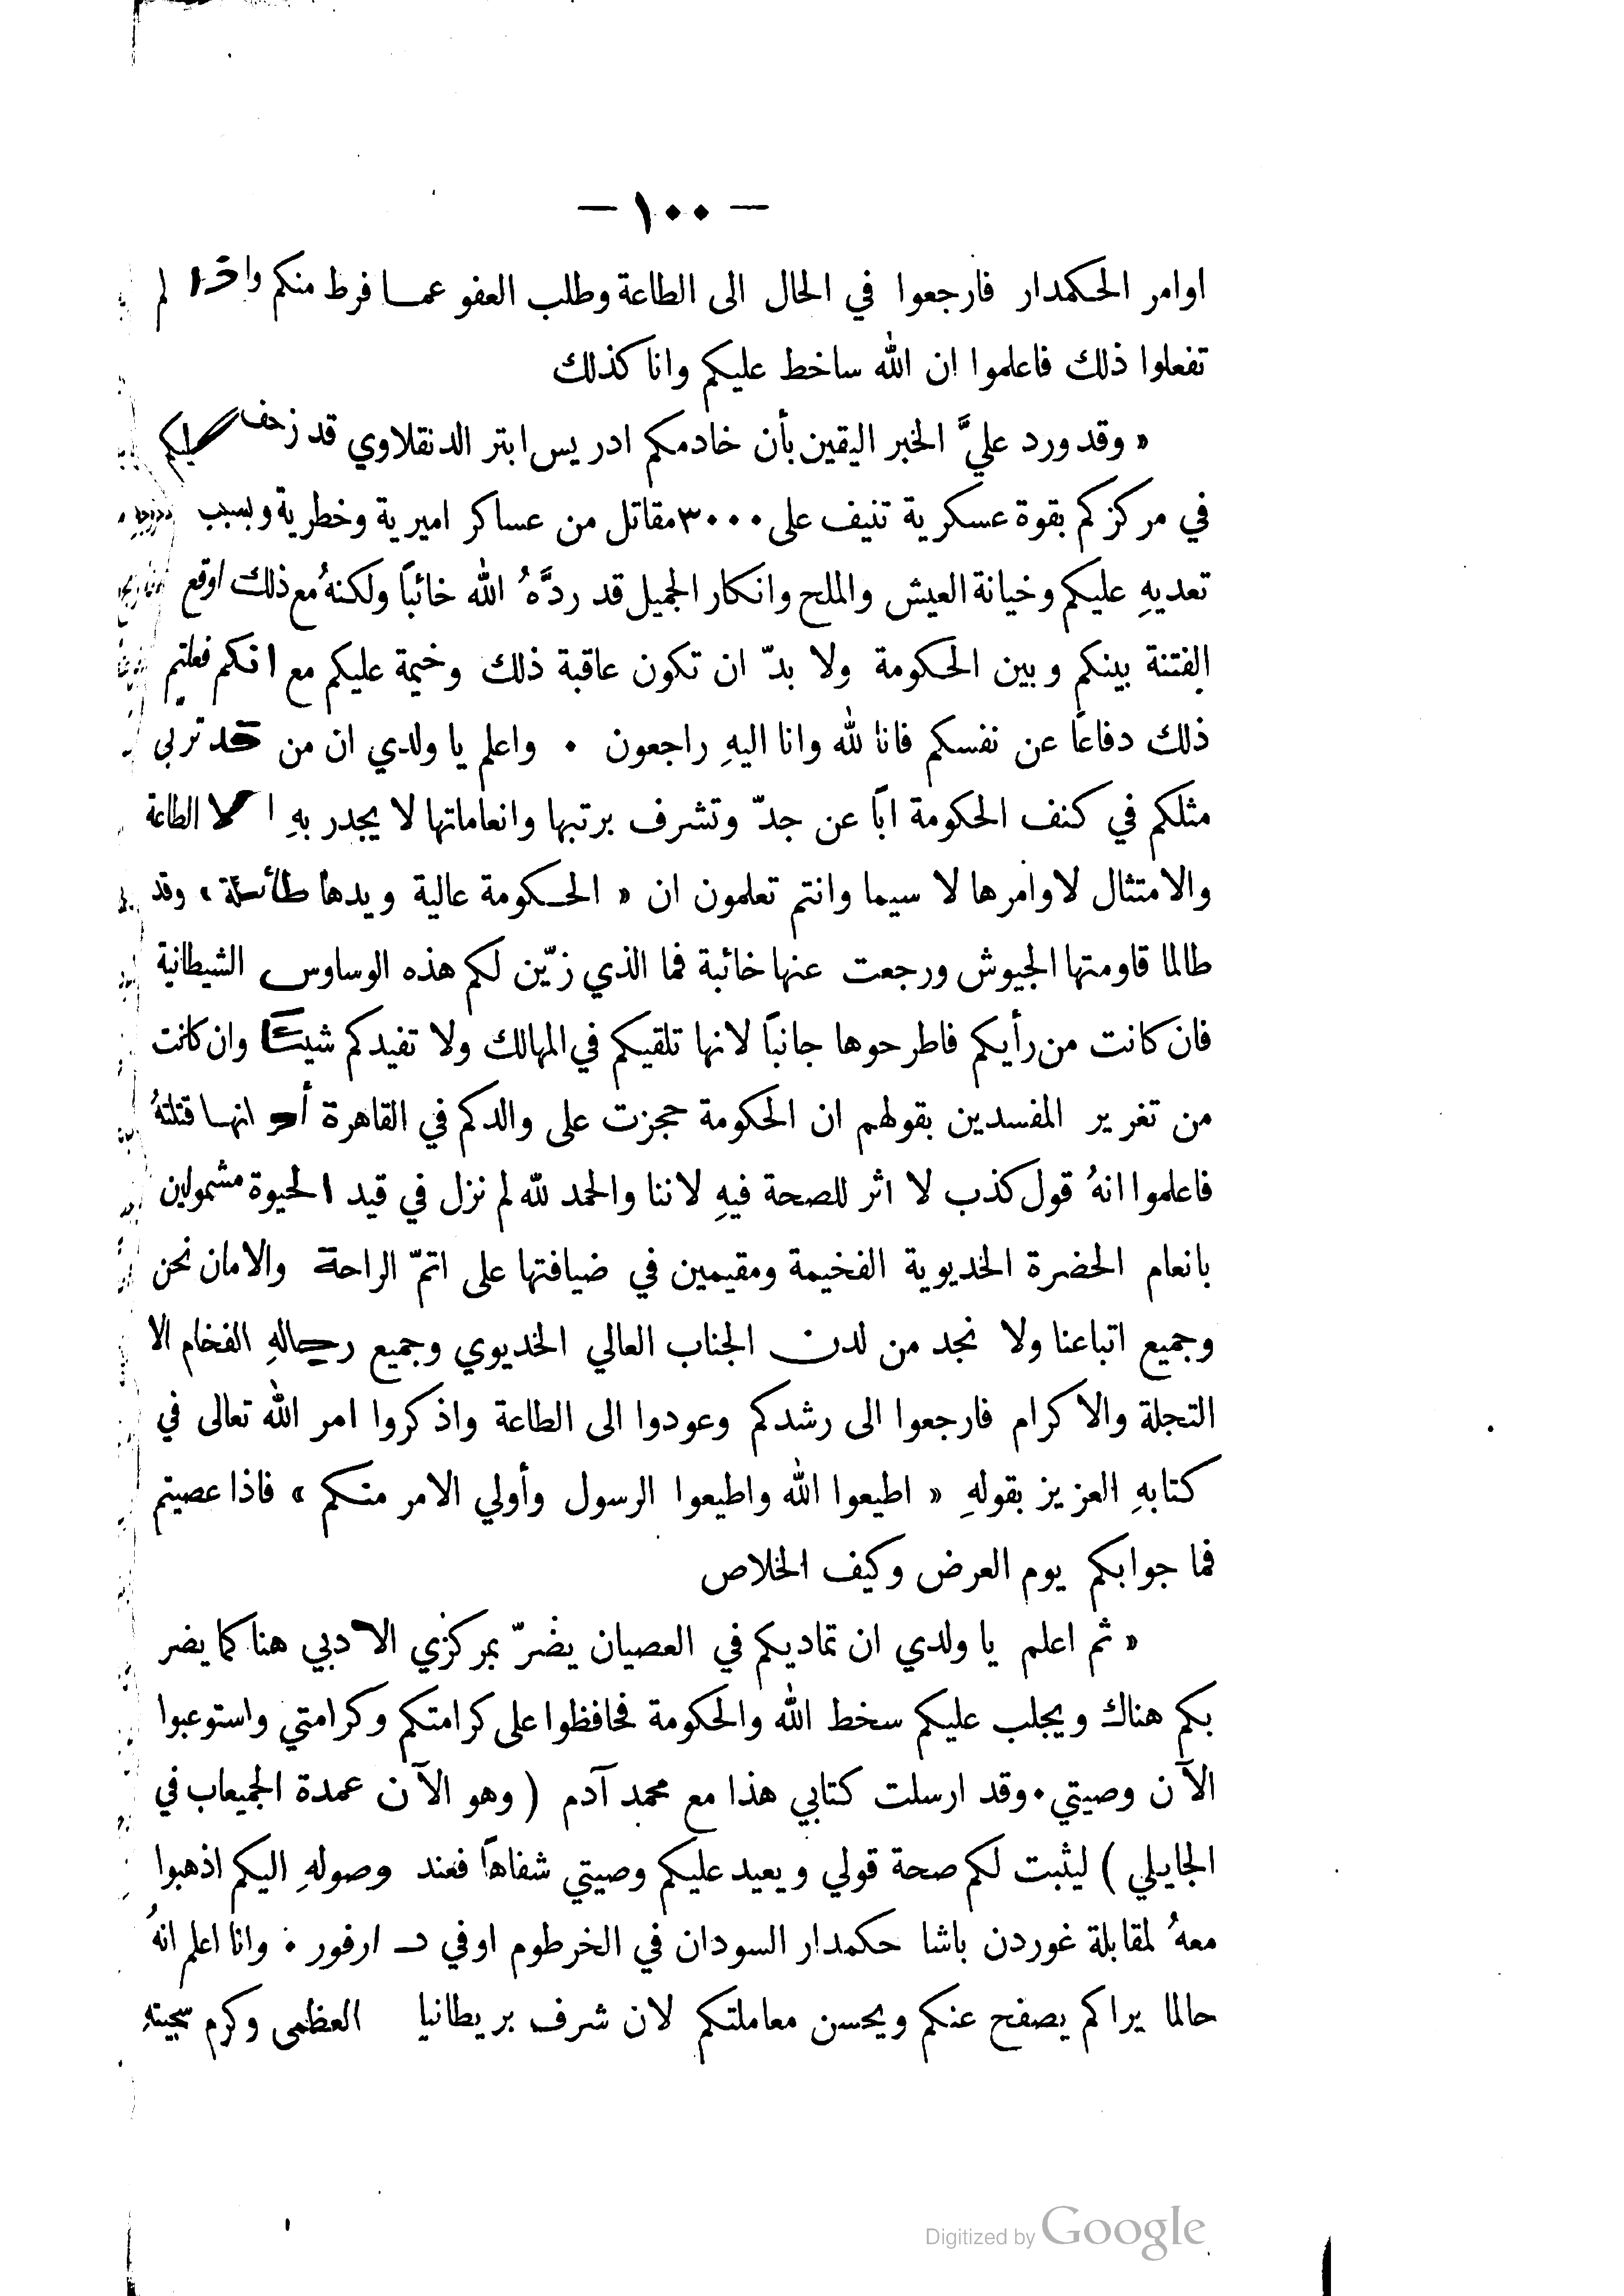 — ١٠٠ —
اوامر الحكمدار فارجعوا في الحال الى الطاعة وطلب العفو عما فرط منكم واذا لم
تفعلوا ذلك فاعلموا ان الله ساخط عليكم وانا كذلك
« وقد ورد عليَّ الخبر اليقين بأن خادمكم ادريس ابتر الدنقلاوي قد زحف عليكم
في مركزكم بقوة عسكرية تنيف على ٣٠٠٠ مقاتل من عساكر اميرية وخطرية وبسبب
تعديهِ عليكم وخيانة العيش والملح وانكار الجميل قد ردَّهُ الله خائباً ولكنهُ مع ذلك اوقع
الفتنة بينكم وبين الحكومة ولا بدّ ان تكون عاقبة ذلك وخيمة عليكم مع انكم فعلتم
ذلك دفاعاً عن نفسكم فانا لله وانا اليهِ راجعون ٠ واعلم يا ولدي ان من قد تربى
مثلكم في كنف الحكومة اباً عن جدّ وتشرف برتبها وانعاماتها لا يجدر بهِ الا الطاعة
والامتثال لاوامرها لا سيما وانتم تعلمون ان « الحكومة عالية ويدها طائلة » وقد
طالما قاومتها الجيوش ورجعت عنها خائبة فما الذي زيّن لكم هذه الوساوس الشيطانية
فان كانت من رأيكم فاطرحوها جانباً لانها تلقيكم في المهالك ولا تفيدكم شيئاً وان كانت
من تغرير المفسدين بقولهم ان الحكومة حجزت على والدكم في القاهرة أو انها قتلتهُ
فاعلموا انهُ قول كذب لا اثر للصحة فيهِ لاننا والحمد لله لم نزل في قيد الحيوة مشمولين
بانعام الحضرة الخديوية الفخيمة ومقيمين في ضيافتها على اتمّ الراحة والامان نحن
وجميع اتباعنا ولا نجد من لدن الجناب العالي الخديوي وجميع رجالهِ الفخام الا
التجلة والاكرام فارجعوا الى رشدكم وعودوا الى الطاعة واذكروا امر الله تعالى في
كتابهِ العزيز بقولهِ « اطيعوا الله واطيعوا الرسول وأولي الامر منكم » فاذا عصيتم
فما جوابكم يوم العرض وكيف الخلاص
« ثم اعلم يا ولدي ان تماديكم في العصيان يضرّ بمركزي الادبي هنا كما يضر
بكم هناك ويجلب عليكم سخط الله والحكومة فحافظوا على كرامتكم وكرامتي واستوعبوا
الآن وصيتي ٠ وقد ارسلت كتابي هذا مع محمد آدم ( وهو الآن عمدة الجميعاب في
الجايلي ) ليثبت لكم صحة قولي ويعيد عليكم وصيتي شفاهاً فعند وصولهِ اليكم اذهبوا
معهُ لمقابلة غوردن باشا حكمدار السودان في الخرطوم او في دارفور ٠ وانا اعلم انهُ
حالما يراكم يصفح عنكم ويحسن معاملتكم لان شرف بريطانيا العظمى وكرم سجيتهِ
Digitized by Google